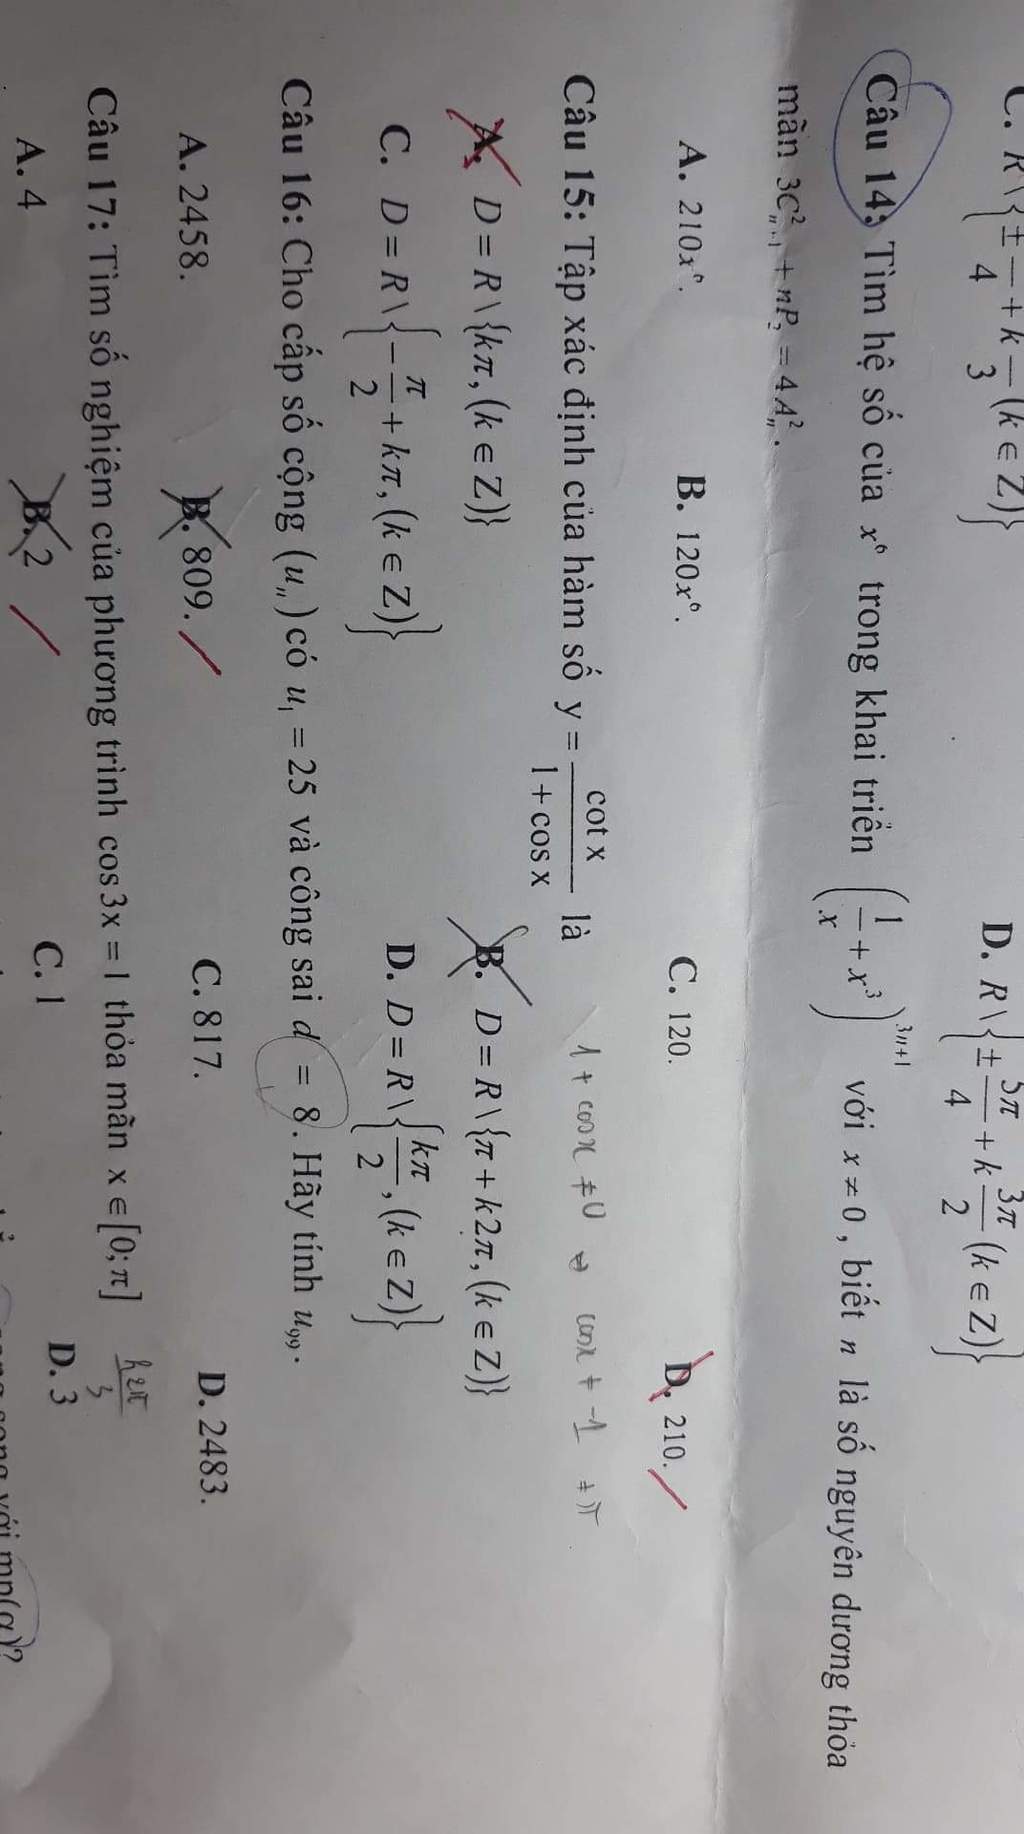 C. R\{± /4 + k /3 (k ∈ Z)}
D. R\{± 3π/4 + k 3π/2 (k ∈ Z)}
Câu 14: Tìm hệ số của x⁶ trong khai triển (1/x + x³)³ⁿ⁺¹ với x ≠ 0, biết n là số nguyên dương thỏa
mãn 3C²ₙ₊₁ + nP₂ = 4A²ₙ.
A. 210x⁶. B. 120x⁶. C. 120. D. 210.
Câu 15: Tập xác định của hàm số y = cot x / (1 + cos x) là
1 + cosx ≠ 0 ⇔ cosx ≠ -1 ≠ π
A. D = R\{kπ, (k ∈ Z)} B. D = R\{π + k2π, (k ∈ Z)}
C. D = R\{-π/2 + kπ, (k ∈ Z)} D. D = R\{kπ/2, (k ∈ Z)}
Câu 16: Cho cấp số cộng (uₙ) có u₁ = 25 và công sai d = 8. Hãy tính u₉₉.
A. 2458. B. 809. C. 817. D. 2483.
Câu 17: Tìm số nghiệm của phương trình cos3x = 1 thỏa mãn x ∈ [0; π]
k2π/3
A. 4 B. 2 C. 1 D. 3
song với mp(α)?